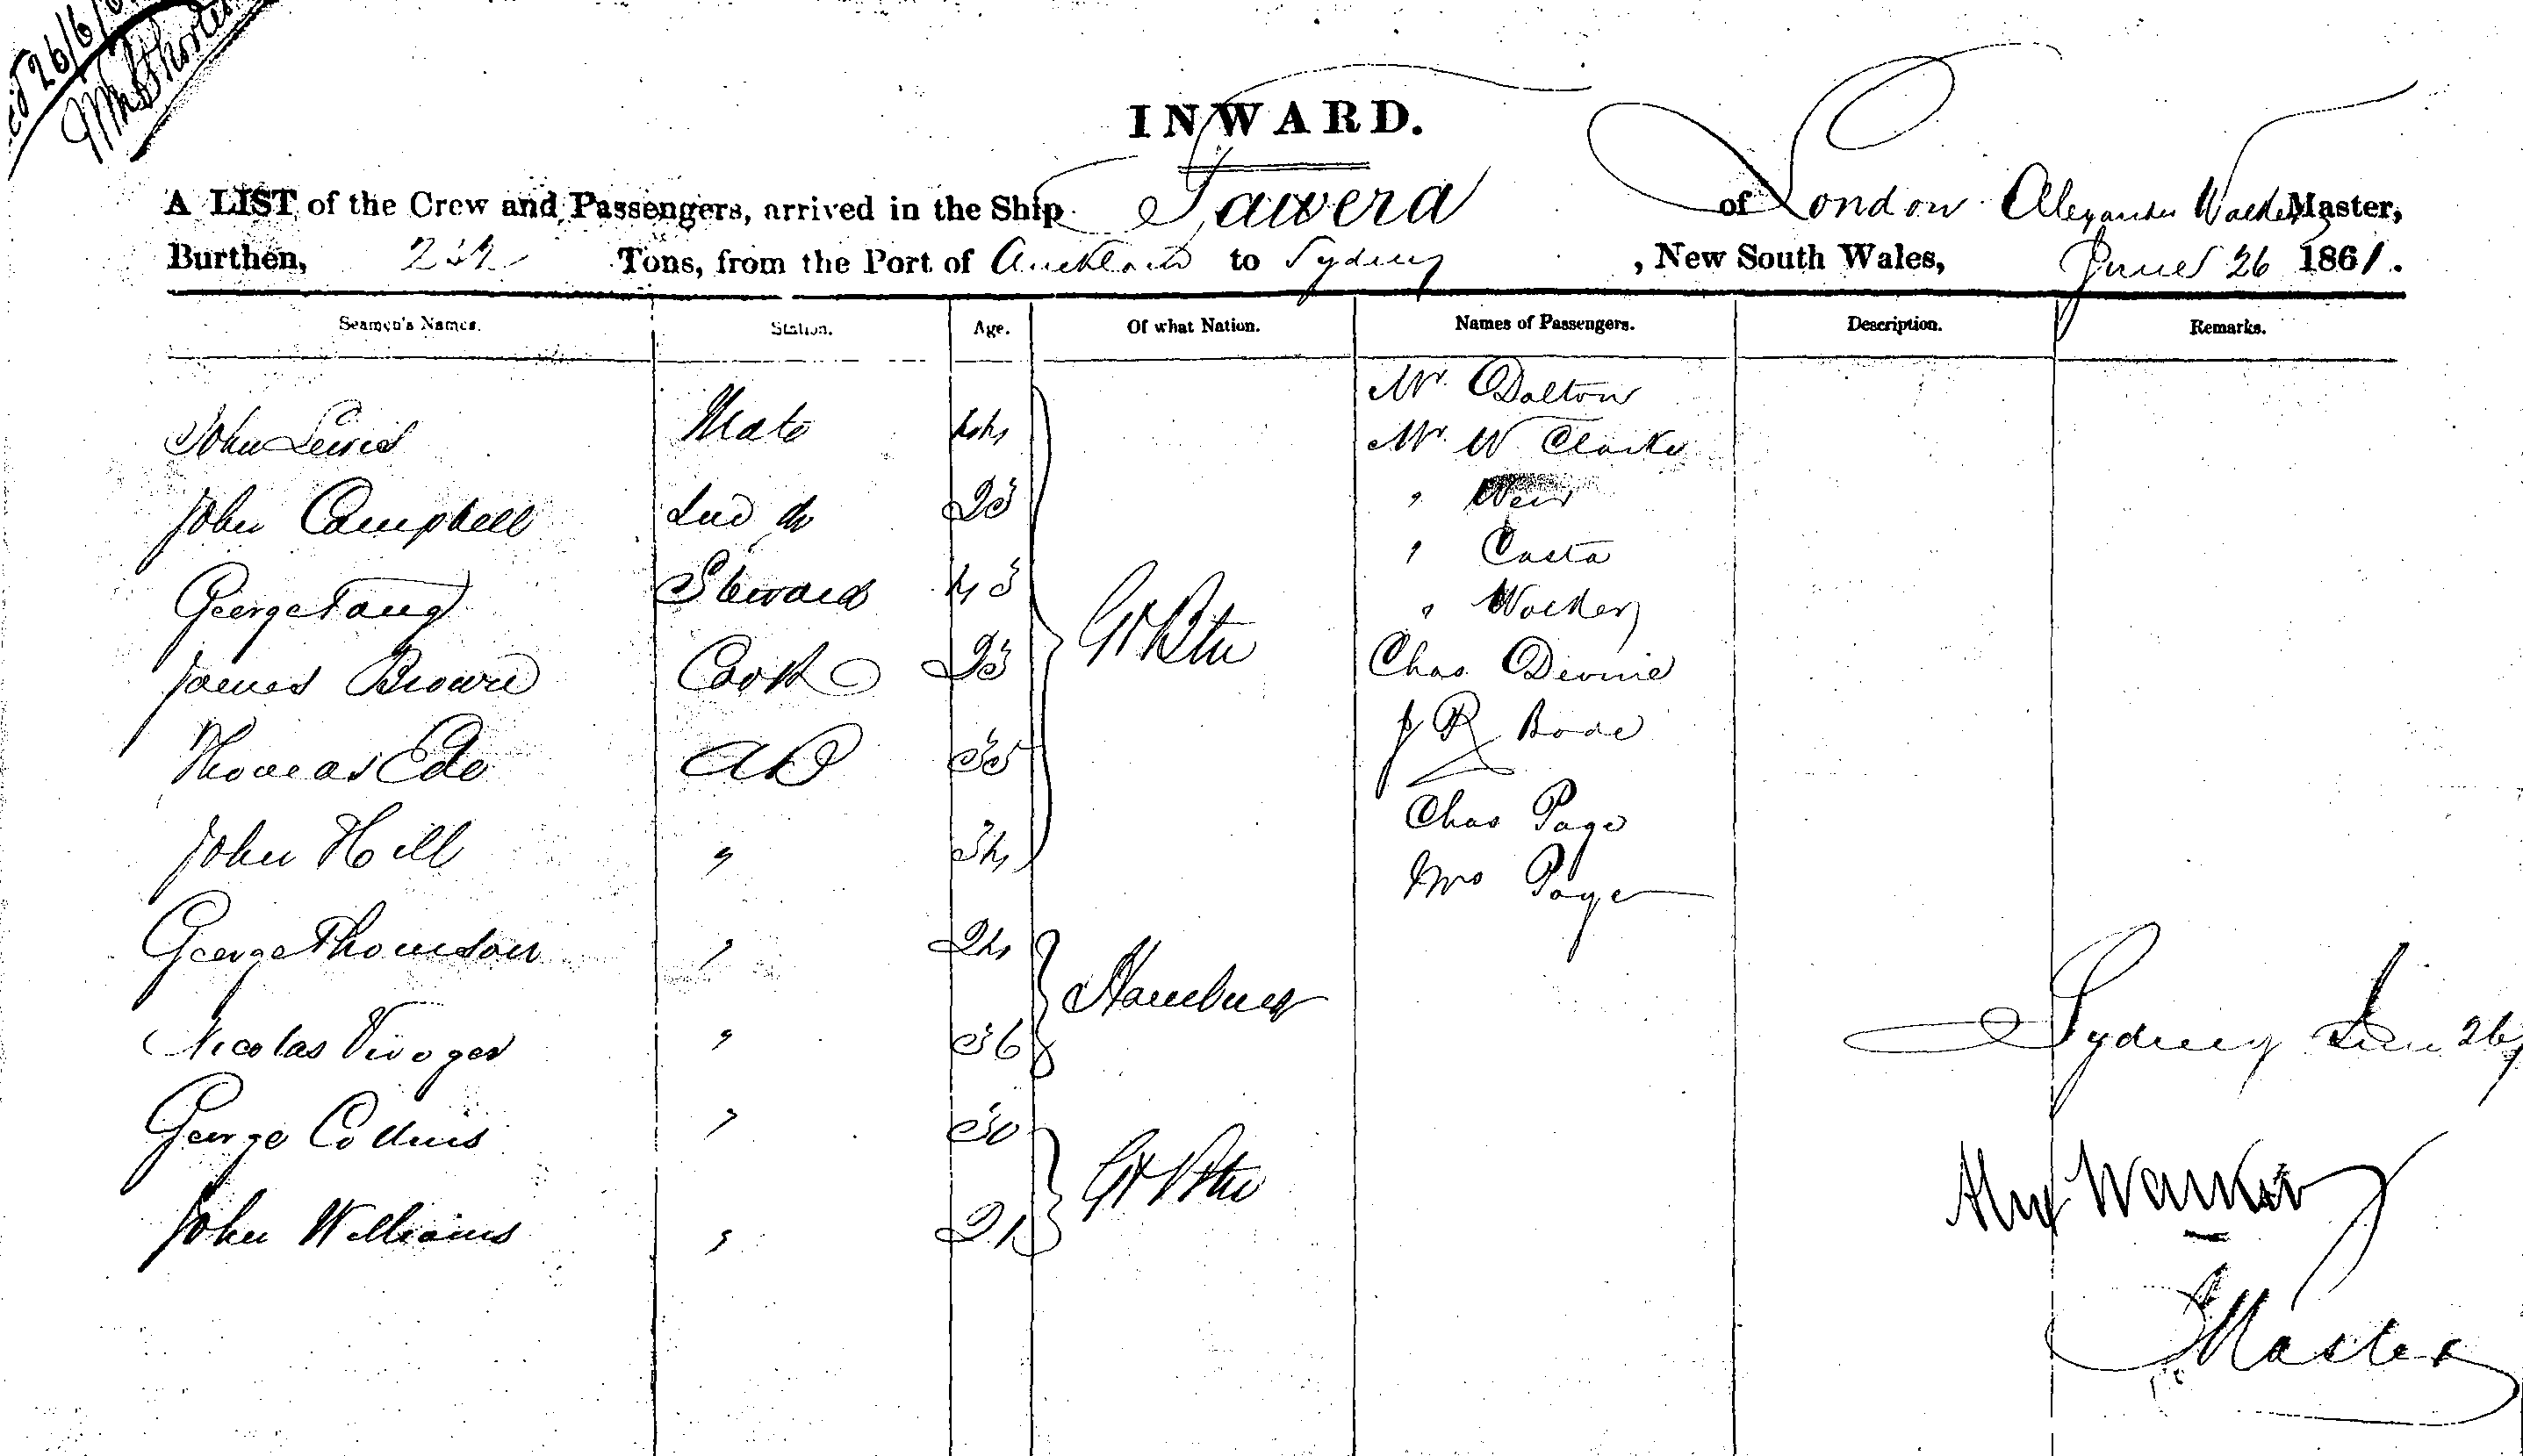 26/6/
INWARD.
A LIST of the Crew and Passengers, arrived in the Ship Tawera of London Alexander Walker Master,
Burthen, Tons, from the Port of Auckland to Sydney, New South Wales, June 26 1861.
Seamen's Names. Station. Age. Of what Nation. Names of Passengers. Description. Remarks.
Mr. Dalton
John Lewis Mate 44
Mr. W Clarke
John Campbell 2nd do 25
" Weir
" Costa
George Steward 45
" Walker
Gt Btn
James Brown Cook 25 Chas Devine
J R Bode
Thomas Ede AB 35
Chas Page
John Hill " 34
Mrs Page
George Thomson " 24
Hamburg
Nicolas " 36
Sydney June 26
George Collins " 30
Gt Btn
Alex Walker
John Williams " 21
Master